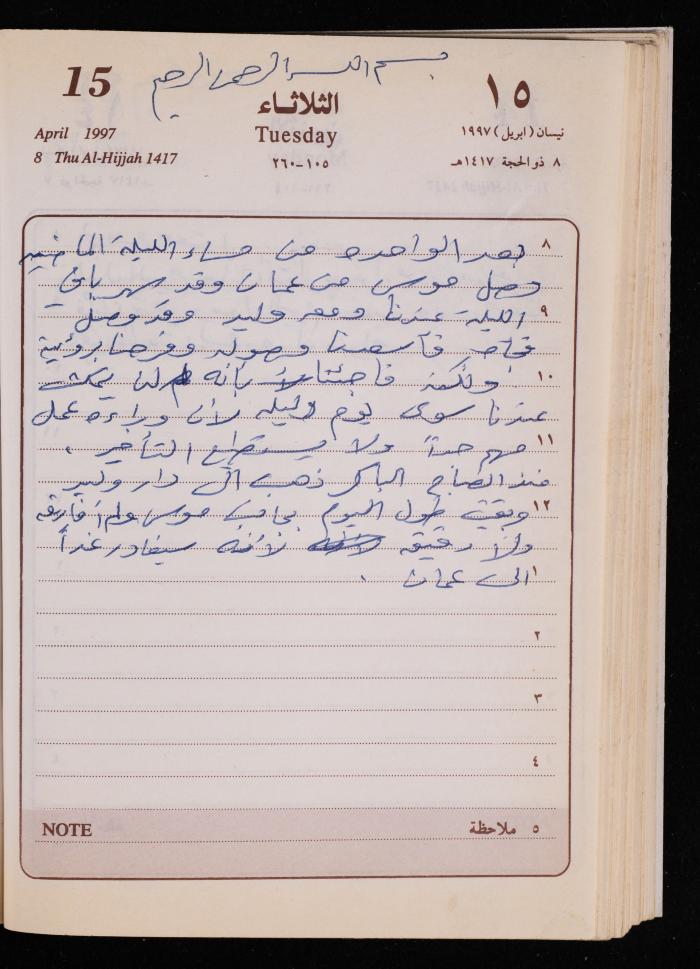 بسم الله الرحمن الرحيم
15
الثلاثاء
١٥
April 1997
Tuesday
نيسان (ابريل) ١٩٩٧
8 Thu Al-Hijjah 1417
١٠٥-٢٦٠
٨ ذو الحجة ١٤١٧هـ
٨ بعد الواحده من مساء الليلة الماضيه
وصل موسى من عمان وقد سهر باقي
٩ الليلة عندنا ومعه وليد وقد وصل
فجأه وفرحنا برؤيته
١٠ ولكنه فاجئنا بأنه لن يمكث
عندنا سوى يوم وليله لأن وراءه عمل
١١ مهم جداً ولا يستطيع التأخير .
منذ الصباح الباكر ذهب الى دار وليد
١٢ وبقيت طول اليوم بجانب موسى ولم أفارقه
ولا دقيقه لأنه سيغادر غداً
١ الى عمان .
٢
٣
٤
NOTE
٥ ملاحظة